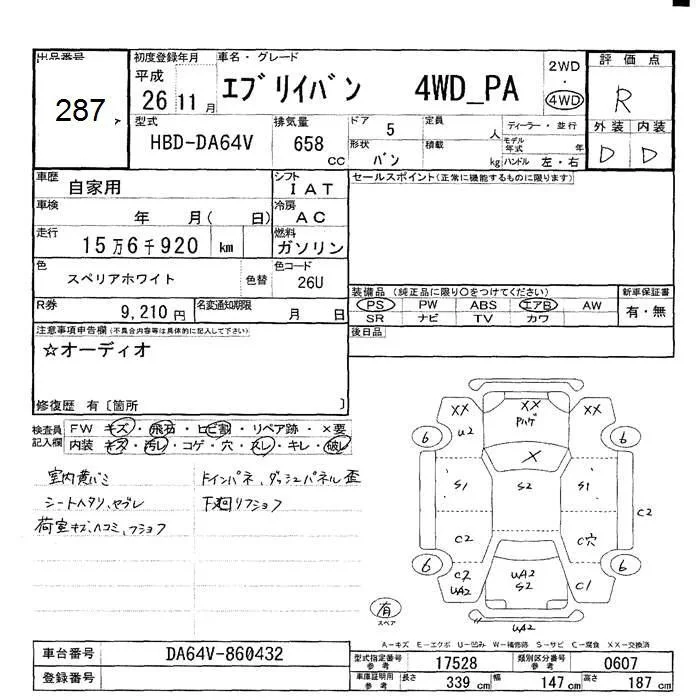 出品番号 初度登録年月 車名・グレード 評価点
287
平成 26 11月 エブリイバン 4WD_PA 2WD・4WD R
型式 HBD-DA64V 排気量 658 CC ドア 5 定員 人 ディーラー・並行 外装 内装
形状 バン 積載 kg モデル年式 年 ハンドル 左・右 D D
車歴 自家用 シフト IAT セールスポイント(正常に機能するものに限ります)
車検 年 月( 日) 冷房 AC
走行 15万6千920 km 燃料 ガソリン
色 スペリアホワイト 色替 色コード 26U
装備品 (純正品に限り○をつけてください) 新車保証書
PS PW ABS エアB AW 有・無
SR ナビ TV カワ
R券 9,210円 名変通知期限 月 日
後日品
注意事項申告欄(不具合内容等は具体的に記入して下さい)
☆オーディオ
修復歴 有〔箇所 〕
検査員記入欄 FW キズ・飛石・ヒビ割・リペア跡・×要
内装 キズ・汚レ・コゲ・穴・スレ・キレ・破レ
室内黄バミ ドインパネ、ダッシュパネル歪
シートヘタリ、ヤブレ 下廻リフショフ
荷室キズ、ヘコミ、フショフ
XX XX XX
U2 Pハゲ
6 6
X
S1 S2 S1
C2 C穴 C2
6 6
C2 UA2 UA2 S2 C1
UA2
有
スペア
A-キズ E-エクボ U-凹み W-補修跡 S-サビ C-腐食 XX-交換済
車台番号 DA64V-860432
型式指定番号 参考 17528 類別区分番号 参考 0607
登録番号
車庫証明用 参考 長さ 339 cm 幅 147 cm 高さ 187 cm